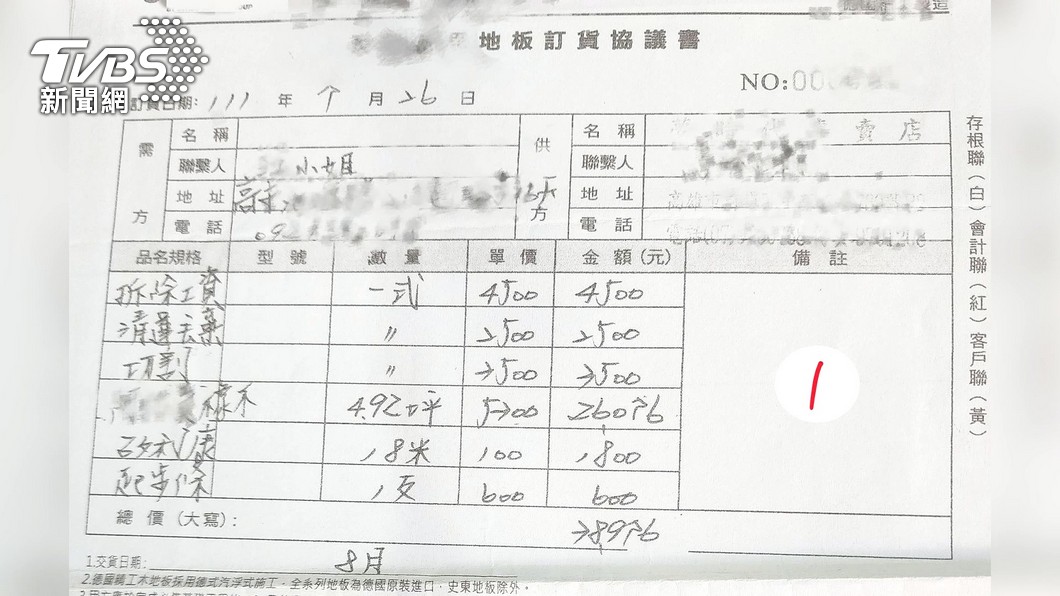 TVBS
新聞網
地板訂貨協議書
NO:00
訂貨日期: 111 年 7 月 26 日
需方 名稱 供方 名稱 賣店
聯繫人 小姐 聯繫人
地址 高雄 地址 高雄市
電話 09 電話
品名規格 型號 數量 單價 金額(元) 備註
拆除工資 一式 4500 4500
清運丟棄 〃 2500 2500
切割 〃 3500 3500
橡木 4.92坪 5300 26076
矽利康 18米 100 1800
起步條 1支 600 600
1
總價(大寫): 38976
1.交貨日期: 8月
2.德國精工木地板採用德式汽浮式施工。全系列地板為德國原裝進口,史東地板除外。
存根聯(白)會計聯(紅)客戶聯(黃)